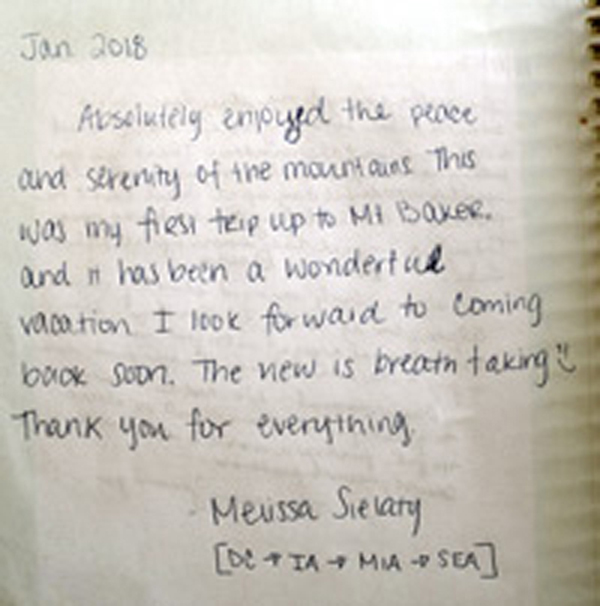 Jan 2018
Absolutely enjoyed the peace
and serenity of the mountains This
was my first trip up to Mt Baker.
and it has been a wonderful
vacation I look forward to coming
back soon. The view is breath taking :)
Thank you for everything.
Melissa
[DC → IA → MIA → SEA]